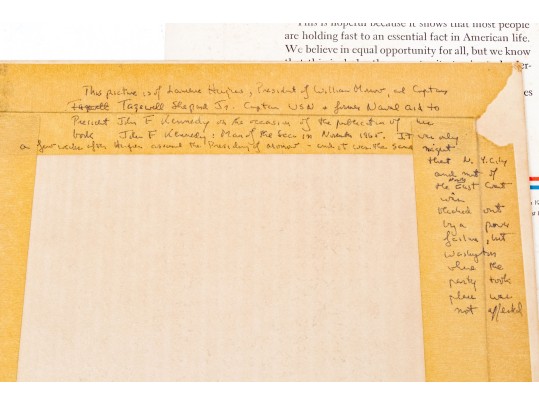 This is hopeful because it shows that most people
are holding fast to an essential fact in American life.
We believe in equal opportunity for all, but we know
This picture is of Lawrence Hughes, President of William Morrow, and Captain
Tazewell Tazewell Shepard Jr. Captain USN + former Naval Aid to
President John F Kennedy on the occasion of the publication of his
book John F Kennedy: Man of the Sea in November 1965. It was only
a few weeks after Hughes assumed the Presidency of Morrow - and it was the same night
that N.Y. City
and most of
the East Coast
were
blacked out
by a power
failure, but
Washington
where the
party took
place was
not affected